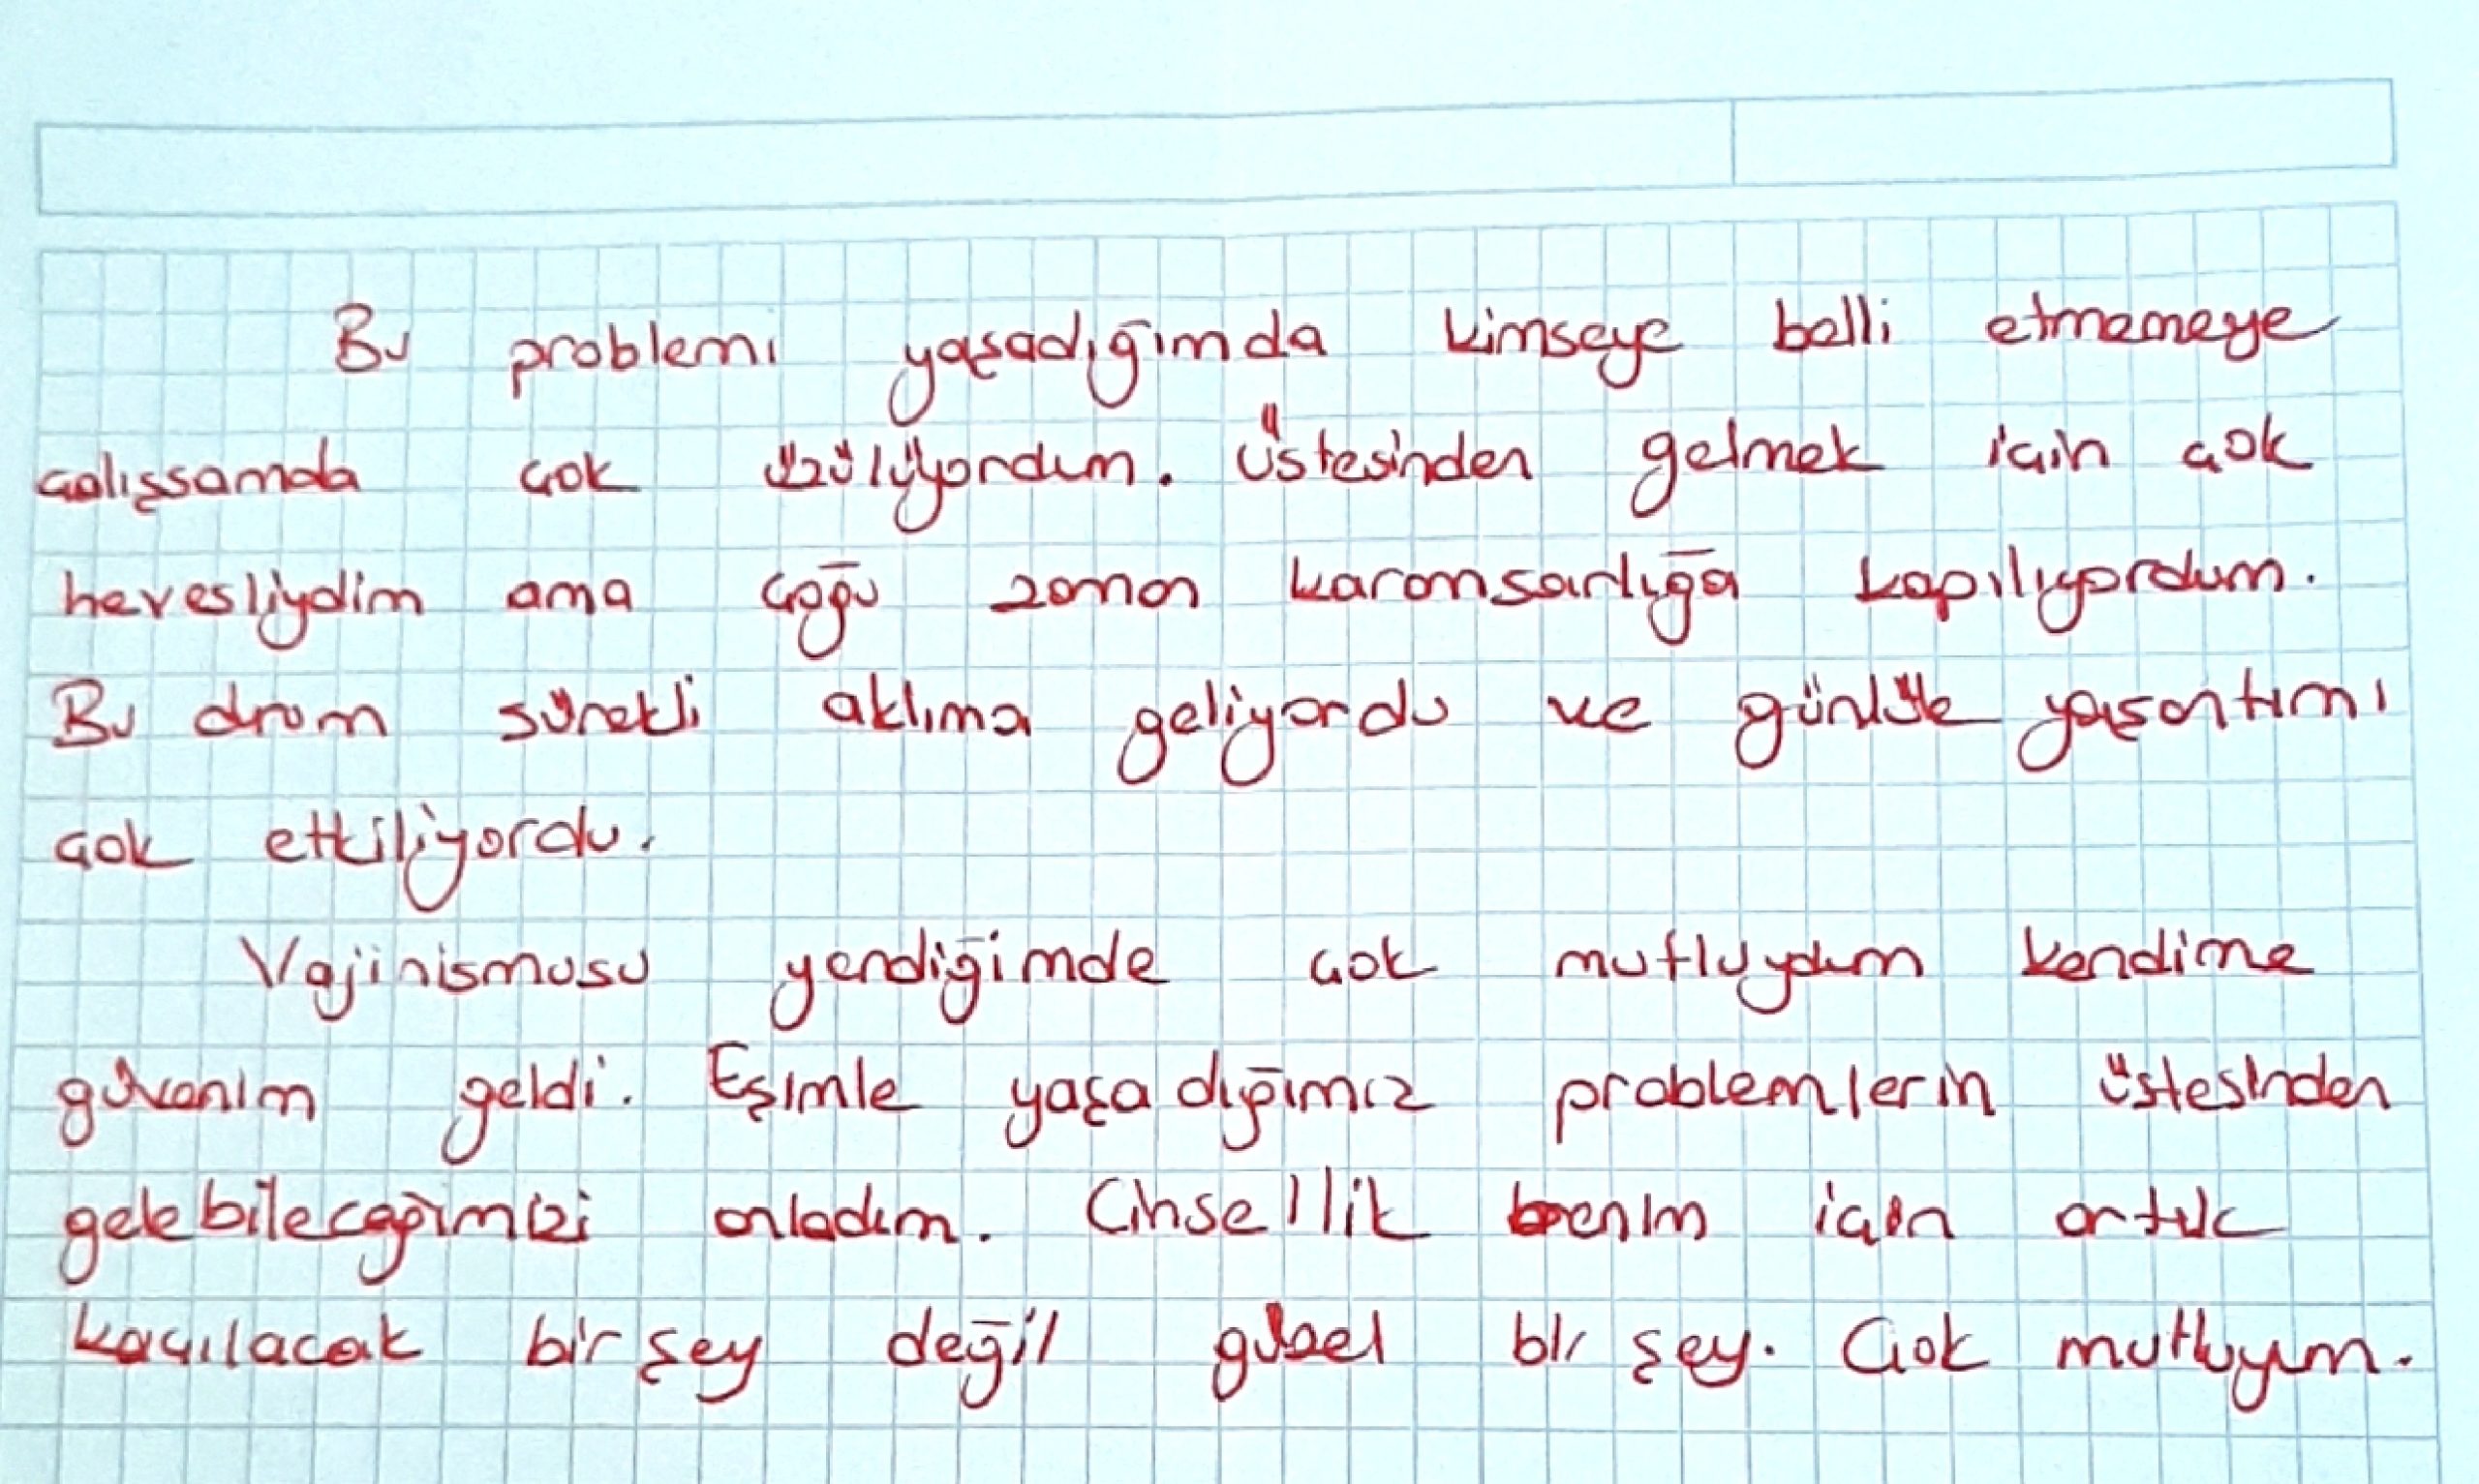 Bu problemi yaşadığımda kimseye belli etmemeye
çalışsamda çok üzülüyordum. Üstesinden gelmek için çok
hevesliydim ama çoğu zaman karamsarlığa kapılıyordum.
Bu durum sürekli aklıma geliyordu ve günlük yaşantımı
çok etkiliyordu.
Vajinismusu yendiğimde çok mutluydum kendime
güvenim geldi. Eşimle yaşadığımız problemlerin üstesinden
gelebileceğimizi anladım. Cinsellik benim için artık
kaçılacak bir şey değil güzel bir şey. Çok mutluyum.